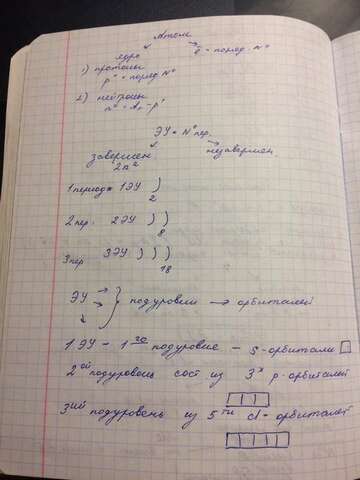 Атом
ядро e⁻ = поряд. №
1) протоны
p⁺ = поряд №
2) нейтроны
n⁰ = Ar - p⁺
ЭУ = № пер.
завершен незавершен
2n²
1 период 1ЭУ )
2
2 пер. 2ЭУ ) )
8
3 пер 3ЭУ ) ) )
18
ЭУ → } подуровни → орбиталей
1 ЭУ - 1 го подуровне - S-орбитали
2 ой подуровень сост из 3 х p-орбиталей
3 ий подуровень из 5 ти d-орбиталей